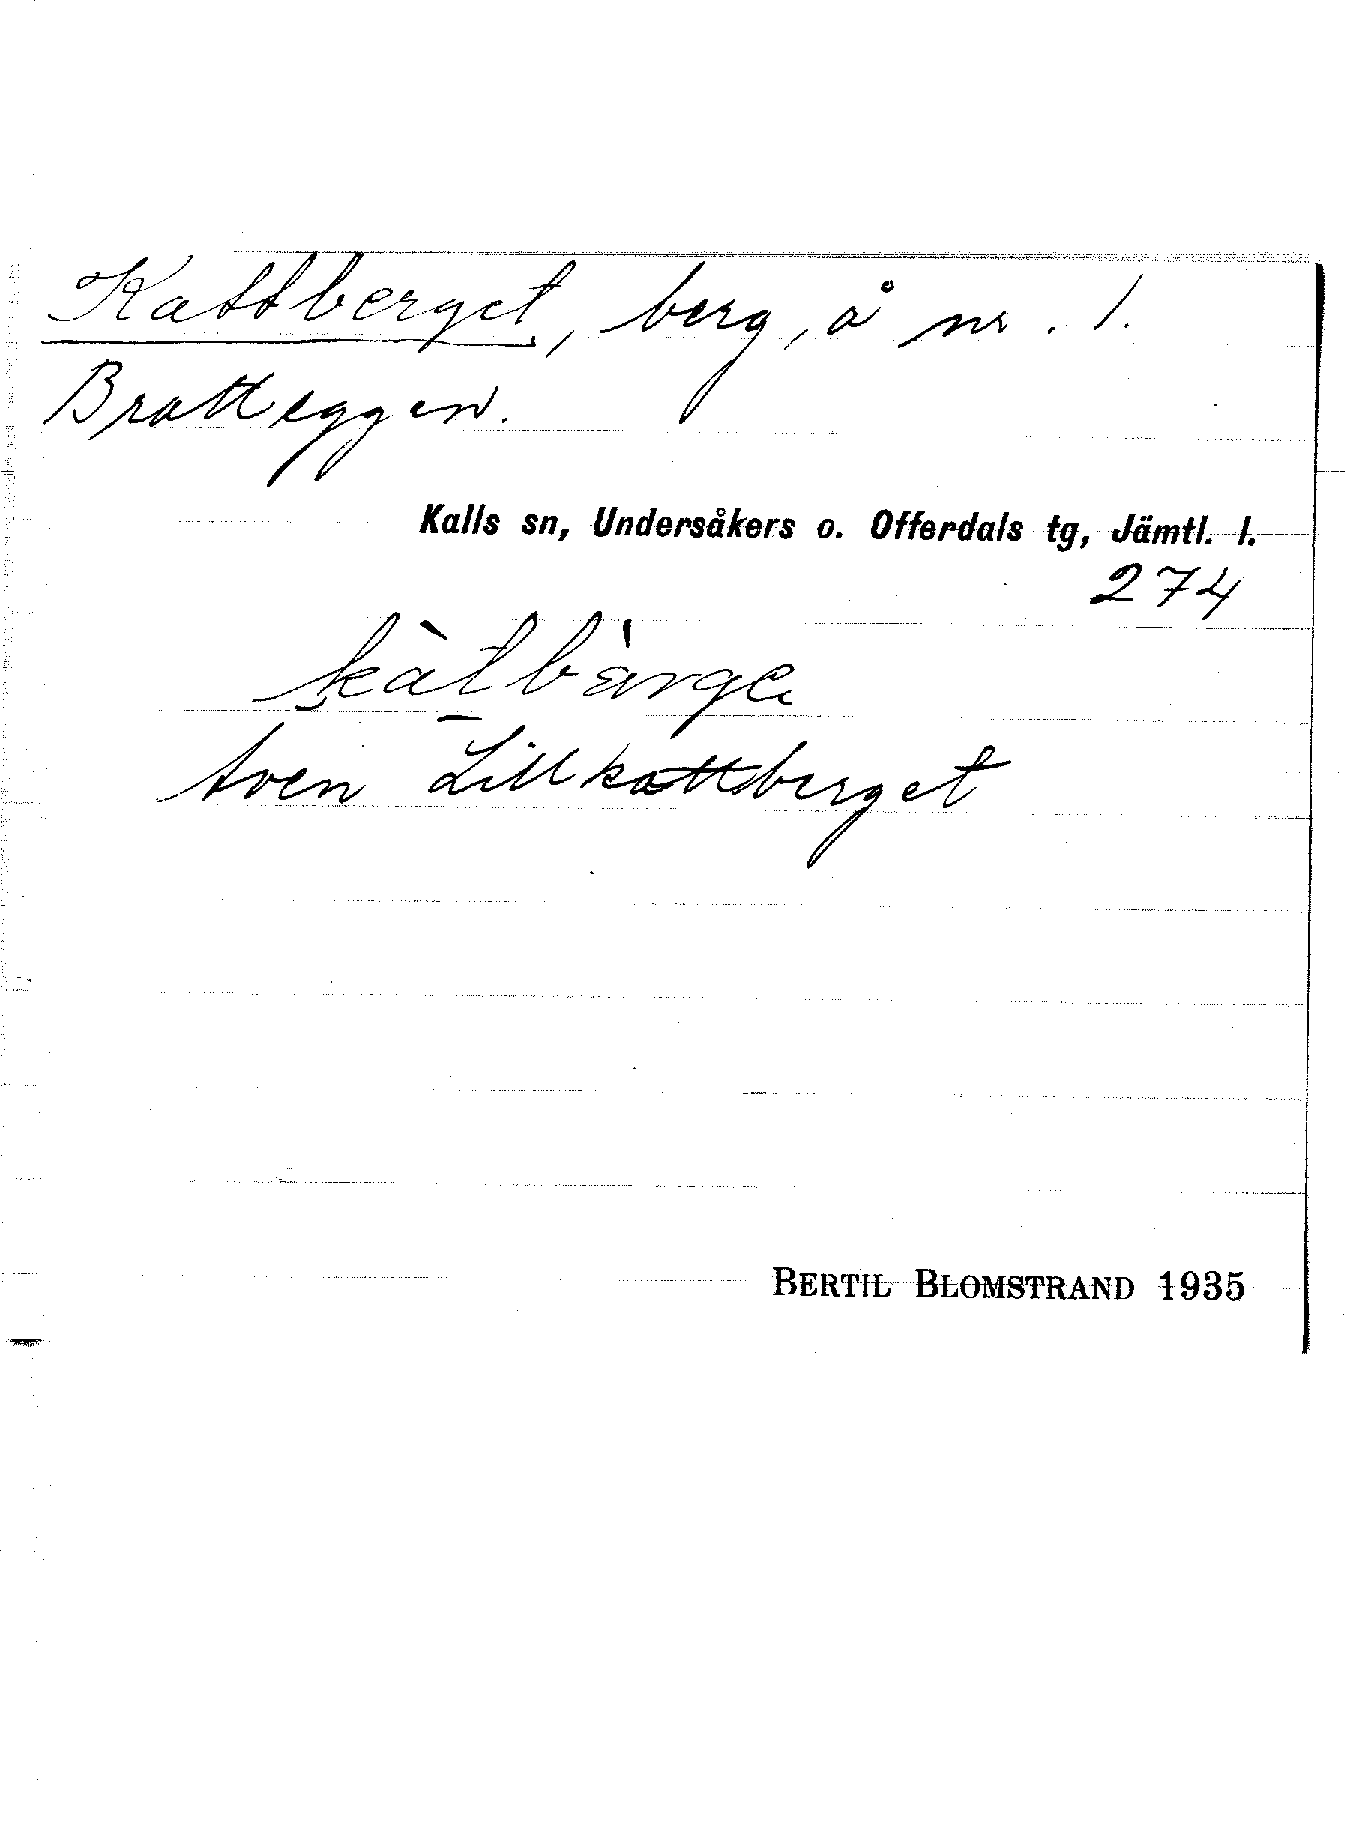 Kattberget, berg, å nr. 1.
Bratteggen.
Kalls sn, Undersåkers o. Offerdals tg, Jämtl. l.
274
kàtbàrge
Även Lillkattberget
BERTIL BLOMSTRAND 1935